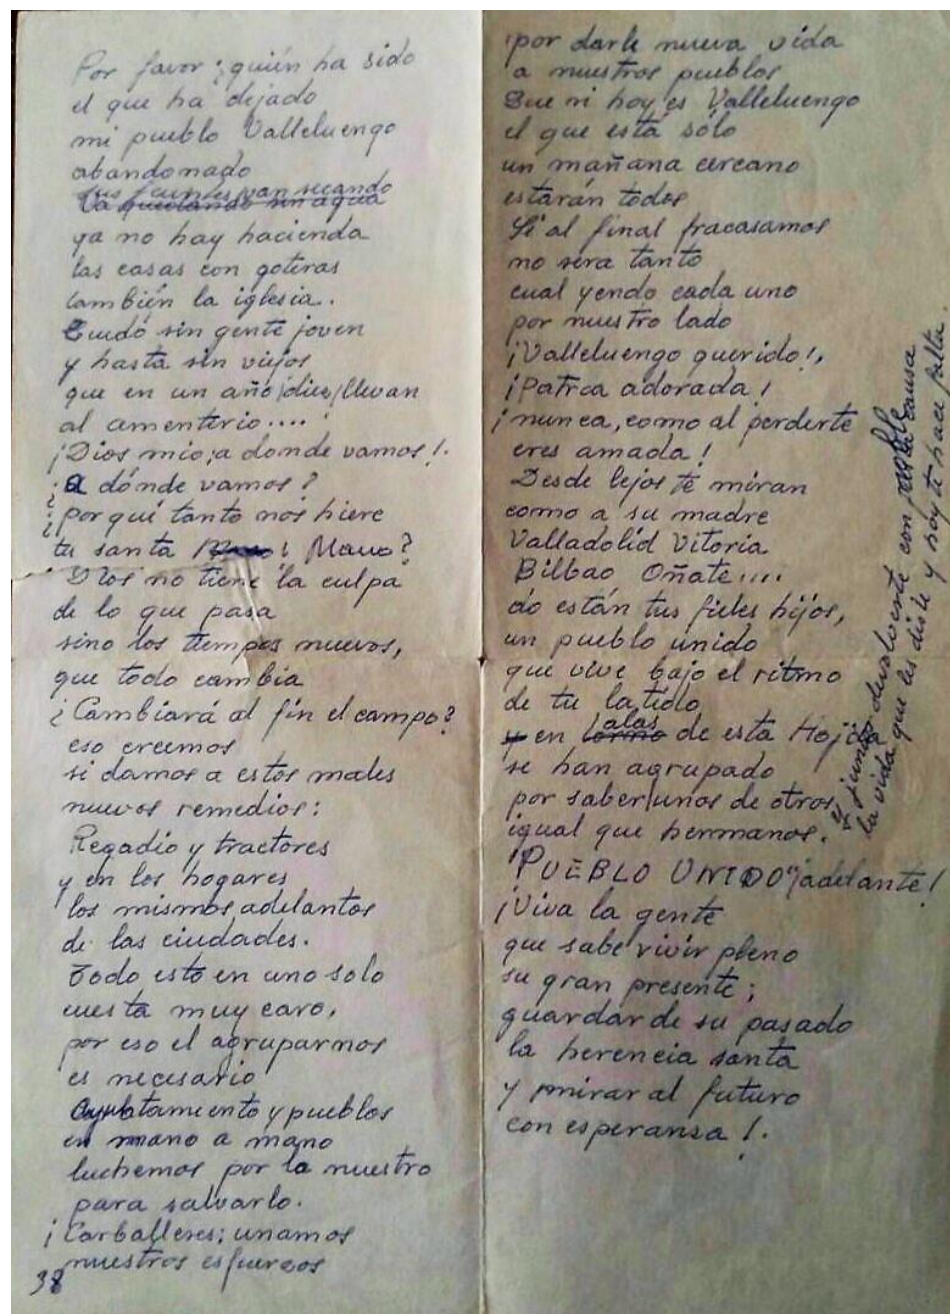 Por favor ¿quién ha sido
el que ha dejado
mi pueblo Valleluengo
abandonado
sus fuentes van secando
Va quedando sin agua
ya no hay hacienda
las casas con goteras
también la iglesia..
Quedó sin gente joven
y hasta sin viejos
que en un año, diez, llevan
al cementerio....
¡Dios mio; a donde vamos!.
¿a dónde vamos?
¿por qué tanto nos hiere
tu santa Mano?
Dios no tiene la culpa
de lo que pasa
sino los tiempos nuevos,
que todo cambia
¿Cambiará al fin el campo?
eso creemos
si damos a estos males
nuevos remedios:
Regadio y tractores
y en los hogares
los mismos adelantos
de las ciudades.
Todo esto en uno solo
cuesta muy caro,
por eso el agruparnos
es necesario
Ayuntamiento y pueblos
en mano a mano
luchemos por lo nuestro
para salvarlo.
¡Carballeses; unamos
nuestros esfuerzos
38
por darle nueva vida
a nuestros pueblos
Que si hoy es Valleluengo
el que está sólo
un mañana cercano
estarán todos
Si al final fracasamos
no sera tanto
cual yendo cada uno
por nuestro lado
¡Valleluengo querido!,
¡Patria adorada!
¡nunca, como al perderte
eres amada!
Desde lejos te miran
como a su madre
Valladolid Vitoria
Bilbao Oñate....
do están tus fieles hijos,
un pueblo unido
que vive bajo el ritmo
de tu latido
y en torno alas de esta Hojita
se han agrupado
por saber unos de otros,
igual que hermanos.
y juntos devolverte con noble causa
la vida que les diste y hoy te hace falta.
"PUEBLO UNIDO" ¡adelante!
¡Viva la gente
que sabe vivir pleno
su gran presente;
guardar de su pasado
la herencia santa
y mirar al futuro
con esperansa!.